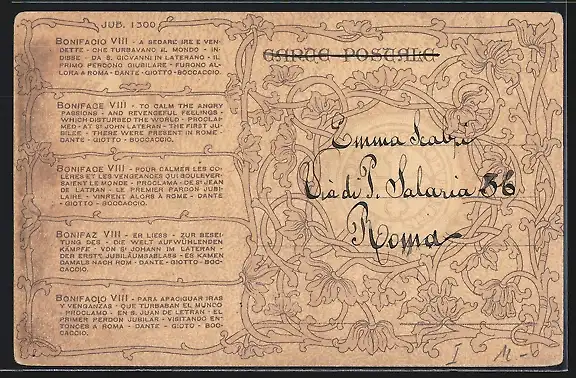 JUB. 1300
BONIFACIO VIII - A SEDARE IRE E VEN-
DETTE - CHE TURBAVANO IL MONDO - IN-
DISSE - DA S. GIOVANNI IN LATERANO - IL
PRIMO PERDONO GIUBILARE - FURONO AL-
LORA A ROMA - DANTE - GIOTTO - BOCCACCIO.
BONIFACE VIII - TO CALM THE ANGRY
PASSIONS - AND REVENGEFUL FEELINGS -
WHICH DISTURBED THE WORLD - PROCLAI-
MED - AT ST JOHN LATERAN - THE FIRST JU-
BILEE - THERE WERE PRESENT IN ROME -
DANTE - GIOTTO - BOCCACCIO.
BONIFACE VIII - POUR CALMER LES CO-
LÈRES ET LES VENGEANCES QUI BOULEVER-
SAIENT LE MONDE - PROCLAMA - DE ST JEAN
DE LATRAN - LE PREMIER PARDON JUBI-
LAIRE - VINRENT ALORS À ROME - DANTE
- GIOTTO - BOCCACCIO.
BONIFAZ VIII - ER LIESS - ZUR BESEI-
TUNG DES - DIE WELT AUFWÜHLENDEN
KÄMPFE - VON ST JOHANN IM LATERAN -
DER ERSTE JUBILÄUMSABLASS - ES KAMEN
DAMALS NACH ROM - DANTE - GIOTTO - BOC-
CACCIO.
BONIFACIO VIII - PARA APACIGUAR IRAS
Y VENGANZAS - QUE TURBABAN EL MUNDO
- PROCLAMO - EN S. JUAN DE LETRAN - EL
PRIMER PERDON JUBILAR - VISITANDO EN-
TONCES A ROMA - DANTE - GIOTO - BOC-
CACCIO.
CARTE POSTALE
Emma
Via di P. Salaria 36
Roma
I